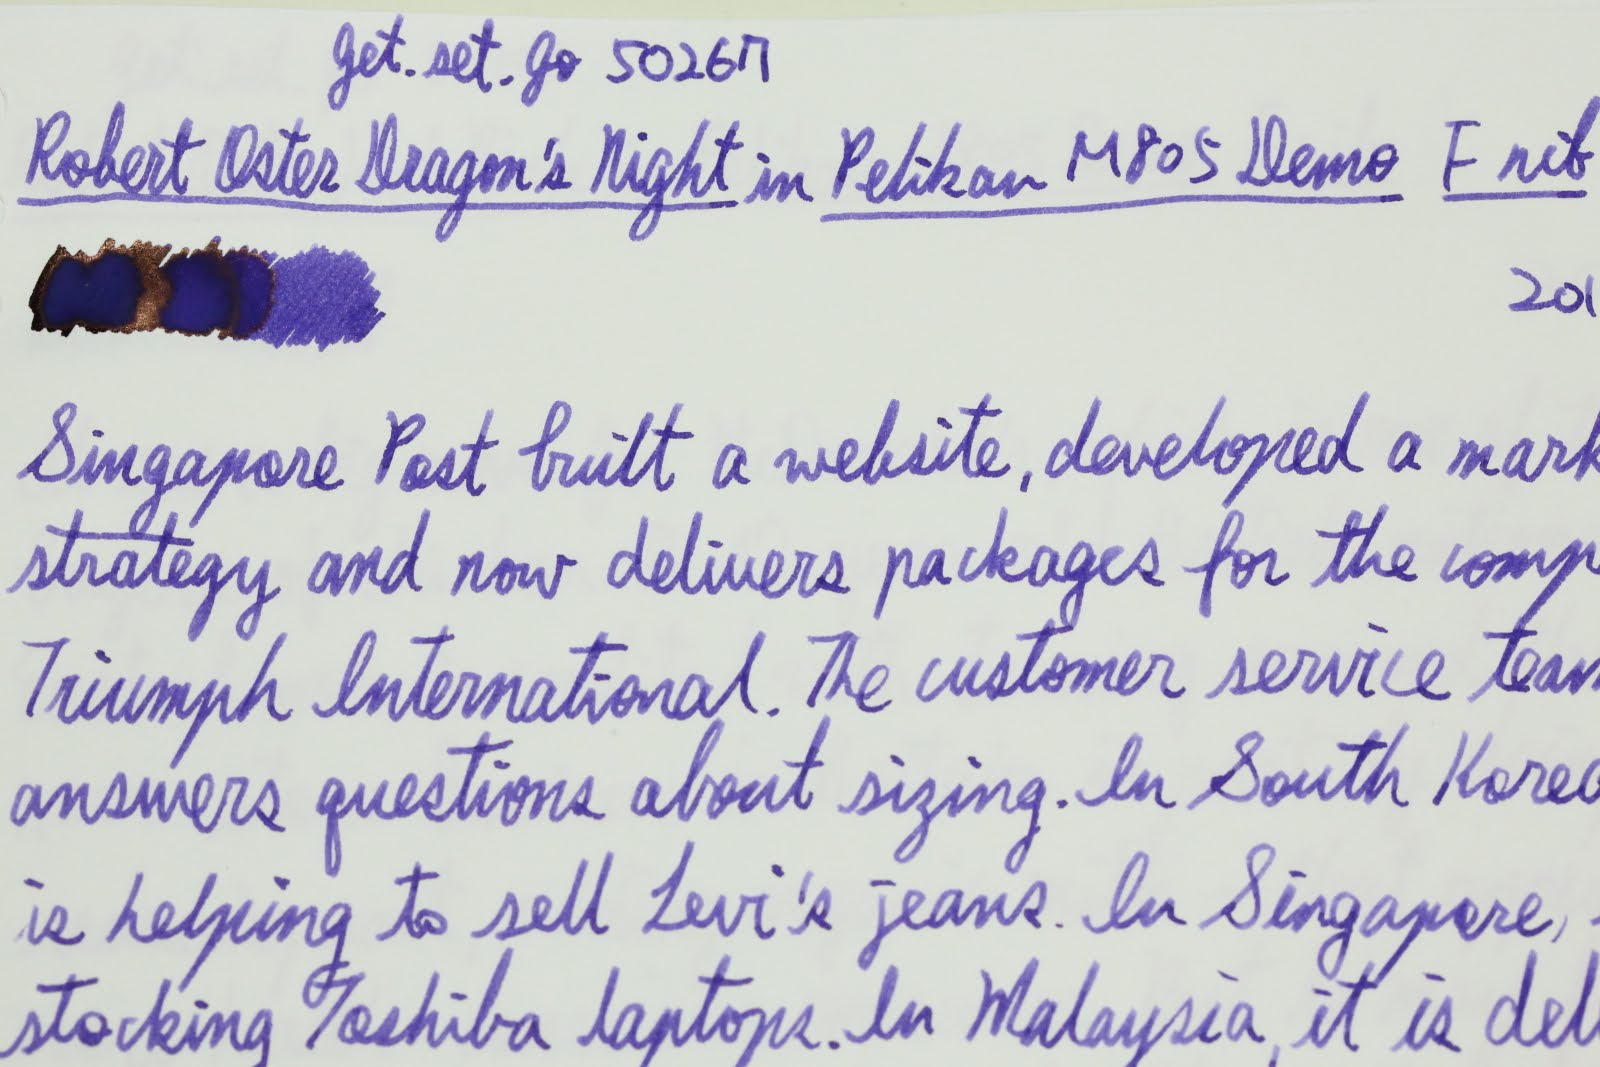 get.set.go 50267
Robert Oster Dragon's Night in Pelikan M805 Demo F nib
201
Singapore Post built a website, developed a mark
strategy and now delivers packages for the comp
Triumph International. The customer service team
answers questions about sizing. In South Korea
is helping to sell Levi's jeans. In Singapore,
stocking Toshiba laptops. In Malaysia, it is deli